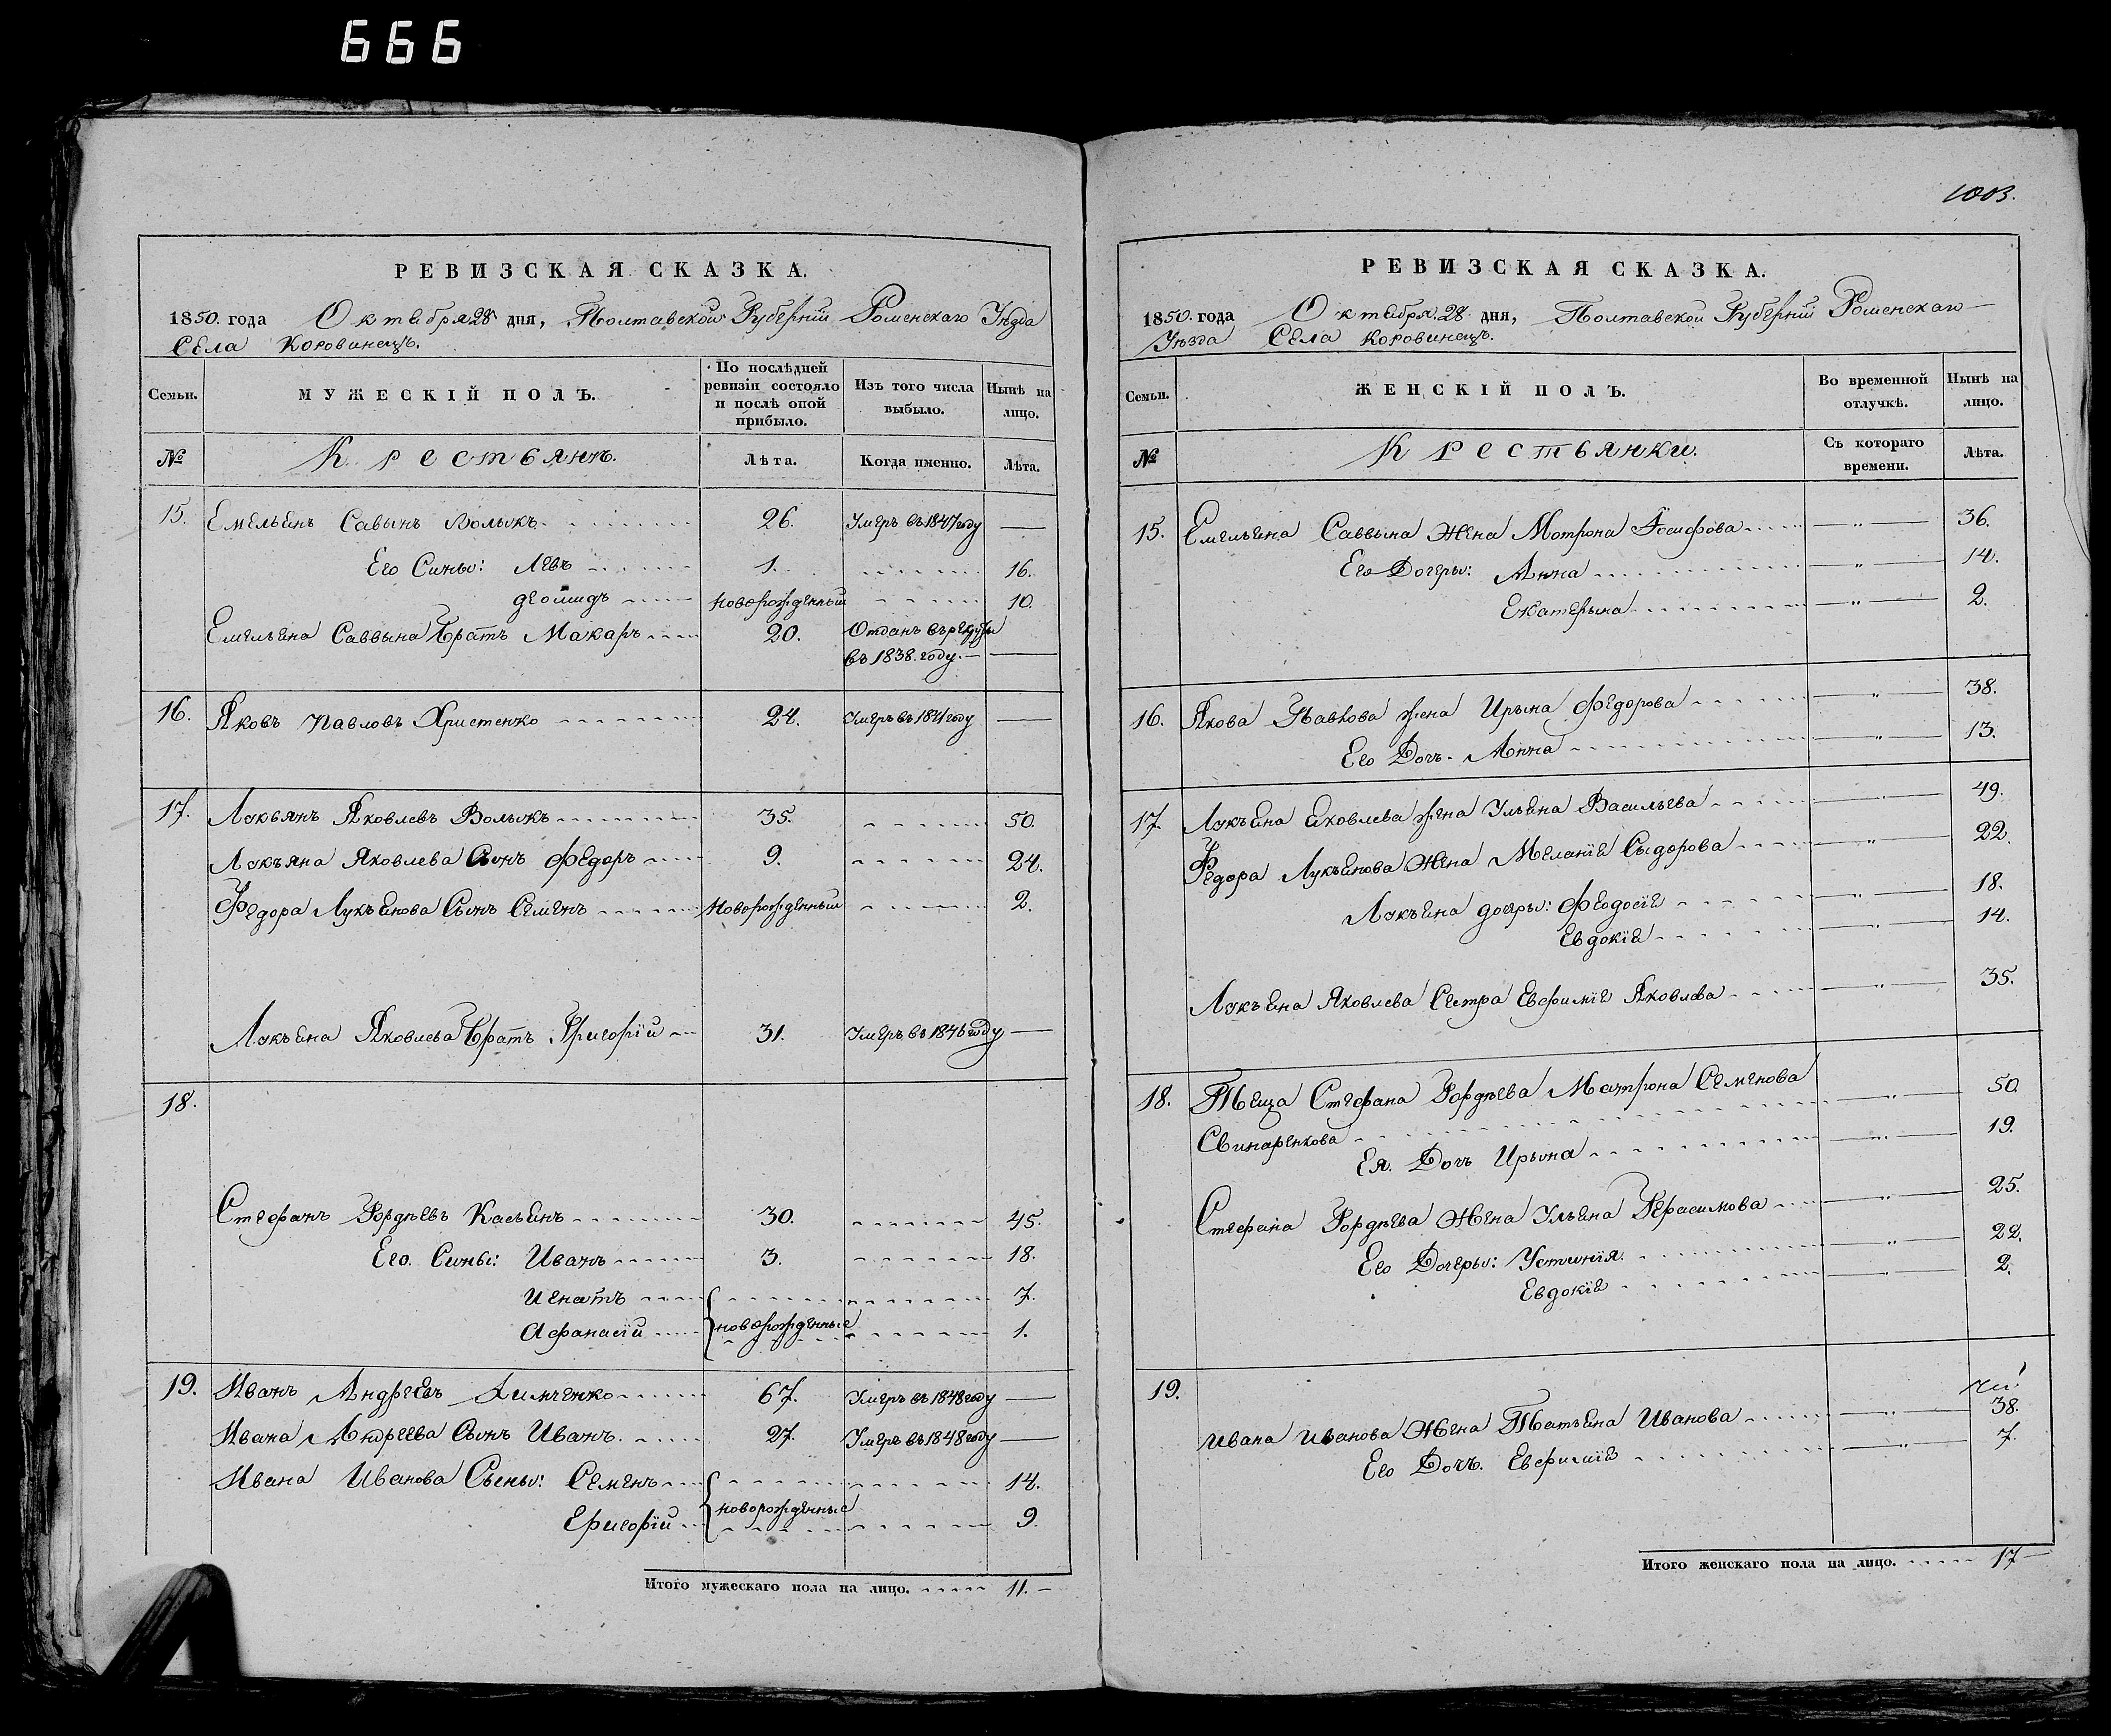 666
РЕВИЗСКАЯ СКАЗКА.
1850. года Октября 28 дня, Полтавской Губерніи Роменскаго Уѣзда
Села Коровинецъ.
Семьи. МУЖЕСКІЙ ПОЛЪ. По послѣдней ревизіи состояло и послѣ оной прибыло. Изъ того числа выбыло. Нынѣ на лицо.
№ Крестьянъ. Лѣта. Когда именно. Лѣта.
15. Емельенъ Савынъ Волыкъ 26. Умеръ въ 1847 году —
Его Сины: Левъ 1. 16.
Деомидъ новорожденный 10.
Емельена Саввына Братъ Макаръ 20. Отданъ въ рекруты
въ 1838. году. —
16. Яковъ Павловъ Христенко 24. Умеръ въ 1841 году —
17. Лукьянъ Яковлевъ Волыкъ 35. 50.
Лукъяна Яковлева Сынъ Федоръ 9. 24.
Федора Лукъенова Сынъ Семенъ Новорожденный 2.
Лукъена Яковлева Братъ Григорій 31. Умеръ въ 1846 году —
18.
Стефанъ Гордѣевъ Касьенъ 30. 45.
Его. Сины: Иванъ 3. 18.
Игнатъ 7.
Афанасій новорожденные 1.
19. Иванъ Андреевъ Химченко 67. Умеръ въ 1848 году —
Ивана Андреева Сынъ Иванъ. 27. Умеръ въ 1848 году —
Ивана Иванова Сыны: Семенъ 14.
Григорій новорожденные 9.
Итого мужескаго пола на лицо. 11. —
1003.
РЕВИЗСКАЯ СКАЗКА.
1850. года Октебря. 28. дня, Полтавской Губерніи Роменскаго
Уѣзда Села Коровинецъ.
Семьи. ЖЕНСКІЙ ПОЛЪ. Во временной отлучкѣ. Нынѣ на лицо.
№ Крестьянки. Съ котораго времени. Лѣта.
15. Емельена Саввына Жена Мотрона Іосифова 36.
Его Дочеры: Анна 14.
Екатерына 2.
16. Якова Павлова жена Ирына Федорова 38.
Его Дочъ. Анна 13.
17. Лукъена Яковлева жена Ульена Васильева 49.
Федора Лукъенова Жена Меланіе Сыдорова 22.
Лукъена дочеры: Феодосіе 18.
Евдокіе 14.
Лукъена Яковлева Сестра Евфиміе Яковлева 35.
18. Теща Стефана Гордѣева Матрона Семенова 50.
Свинаренкова
Ея. Дочъ Ирына 19.
Стефана Гордѣева Жена Ульена Герасимова 25.
Его Дочеры: Устинія. 22.
Евдокіе 2.
19.
Ивана Иванова Жена Татьена Иванова 38.
Его Дочъ. Евфиміе 7.
Итого женскаго пола на лицо. 17 —